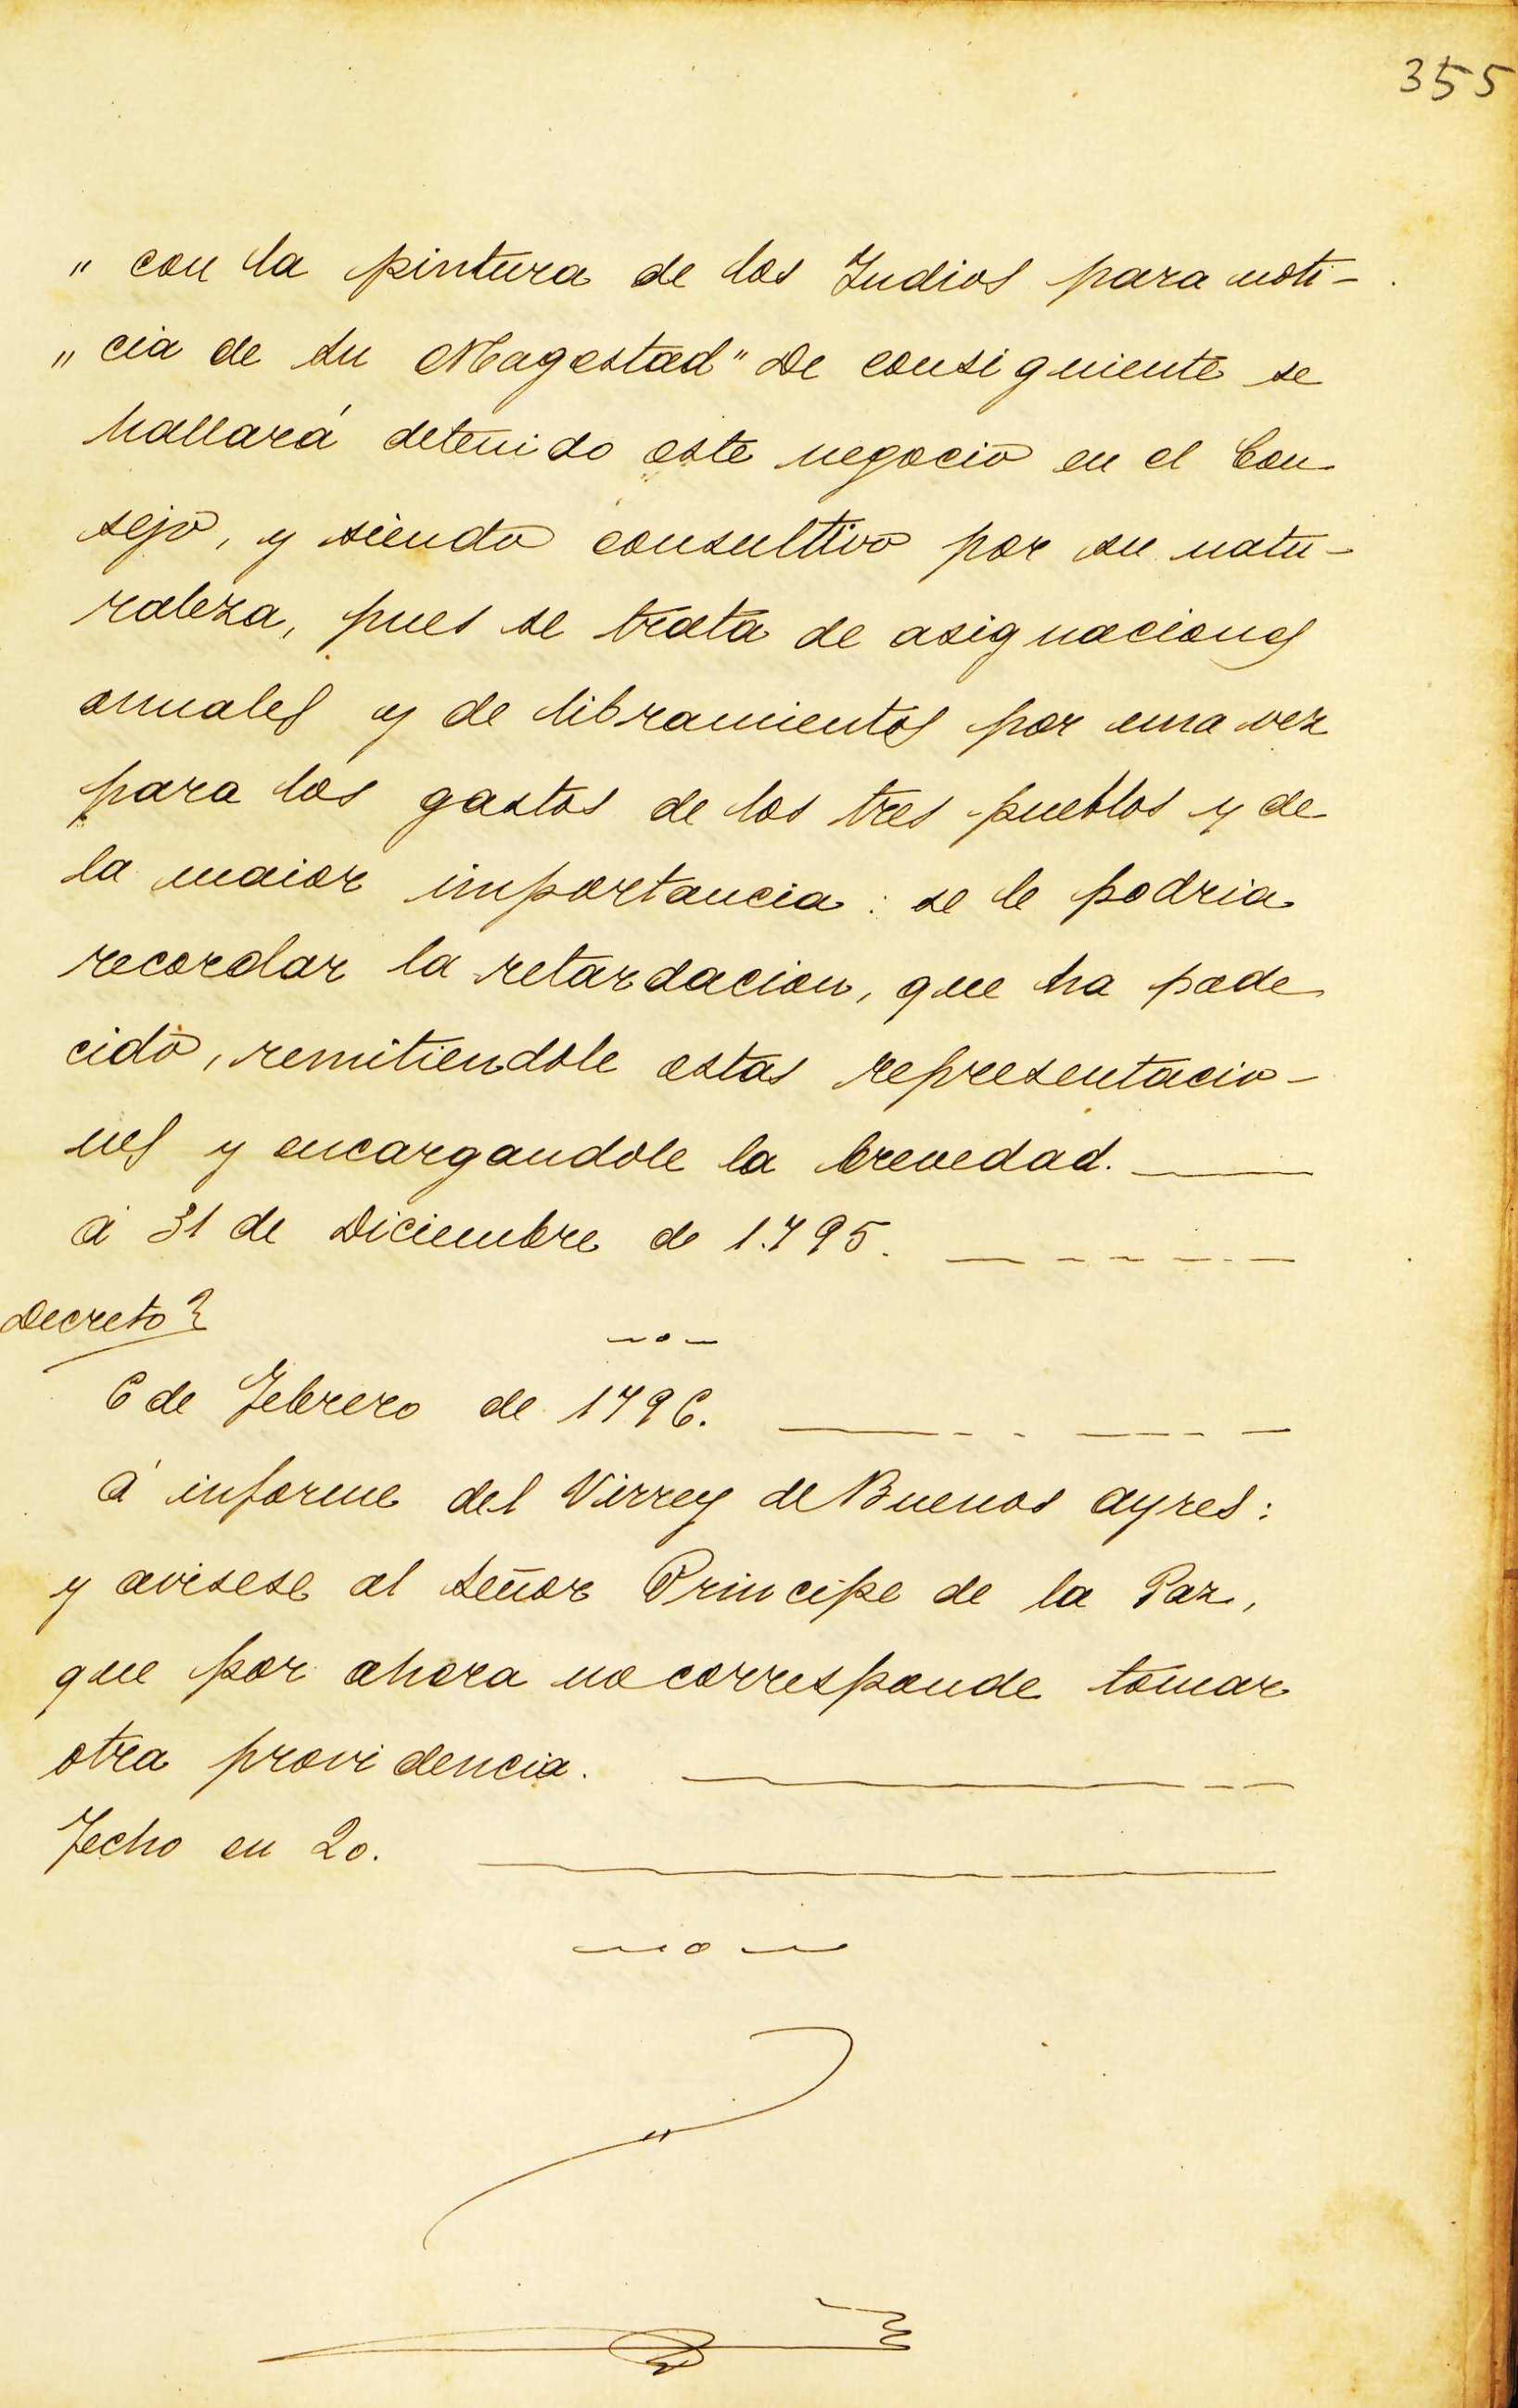 355
" con la pintura de los Indios para noti-
" cia de su Magestad" De consiguiente se
hallará detenido este negocio en el Con
sejo, y siendo consultivo por su natu-
raleza, pues se trata de asignaciones
anuales y de libramientos por una vez
para los gastos de los tres pueblos y de
la maior importancia: se le podria
recordar la retardacion, que ha pade
cido, remitiendole estas representacio-
nes y encargandole la brevedad.
á 31 de Diciembre de 1.795.
Decreto
6 de Febrero de 1796.
Á informe del Virrey de Buenos ayres:
y avisese al señor Principe de la Paz,
que por ahora no corresponde tomar
otra providencia.
Fecho en 20.